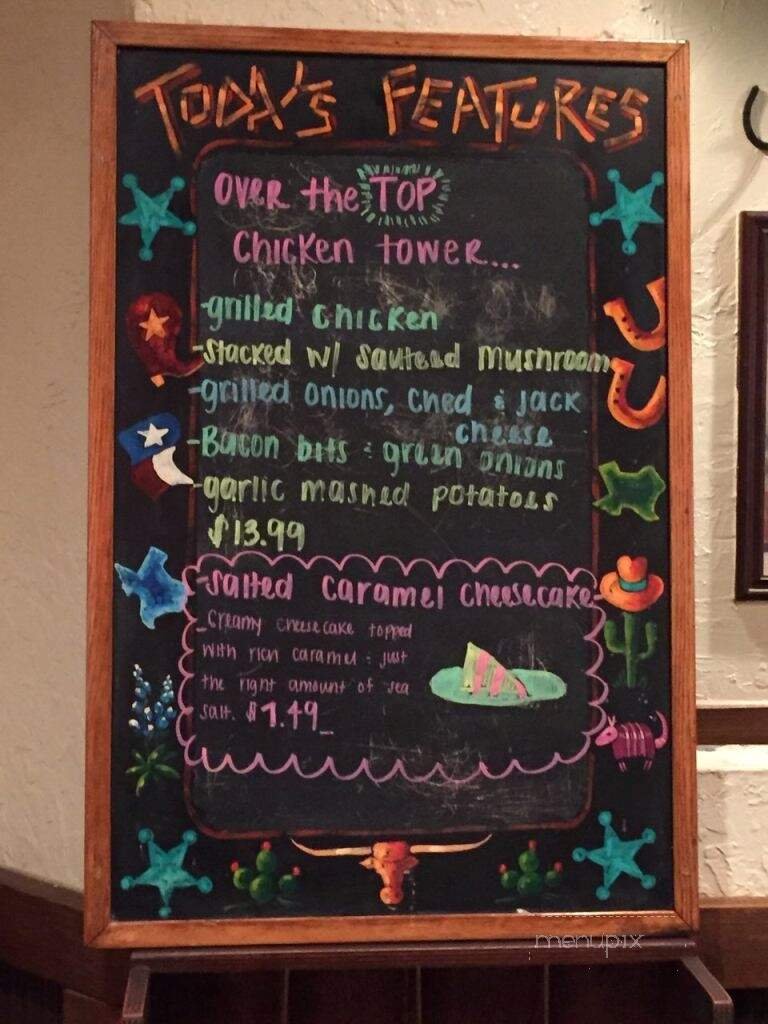 TODA'S FEATURES
OVER the TOP
Chicken tower...
-grilled chicken
-stacked w/ sauteed mushroom
-grilled onions, ched & jack
cheese
-Bacon bits & green onions
-garlic mashed potatoes
$13.99
-salted caramel cheesecake-
_Creamy cheesecake topped
with rich caramel & just
the right amount of sea
salt. $7.49_
menupix